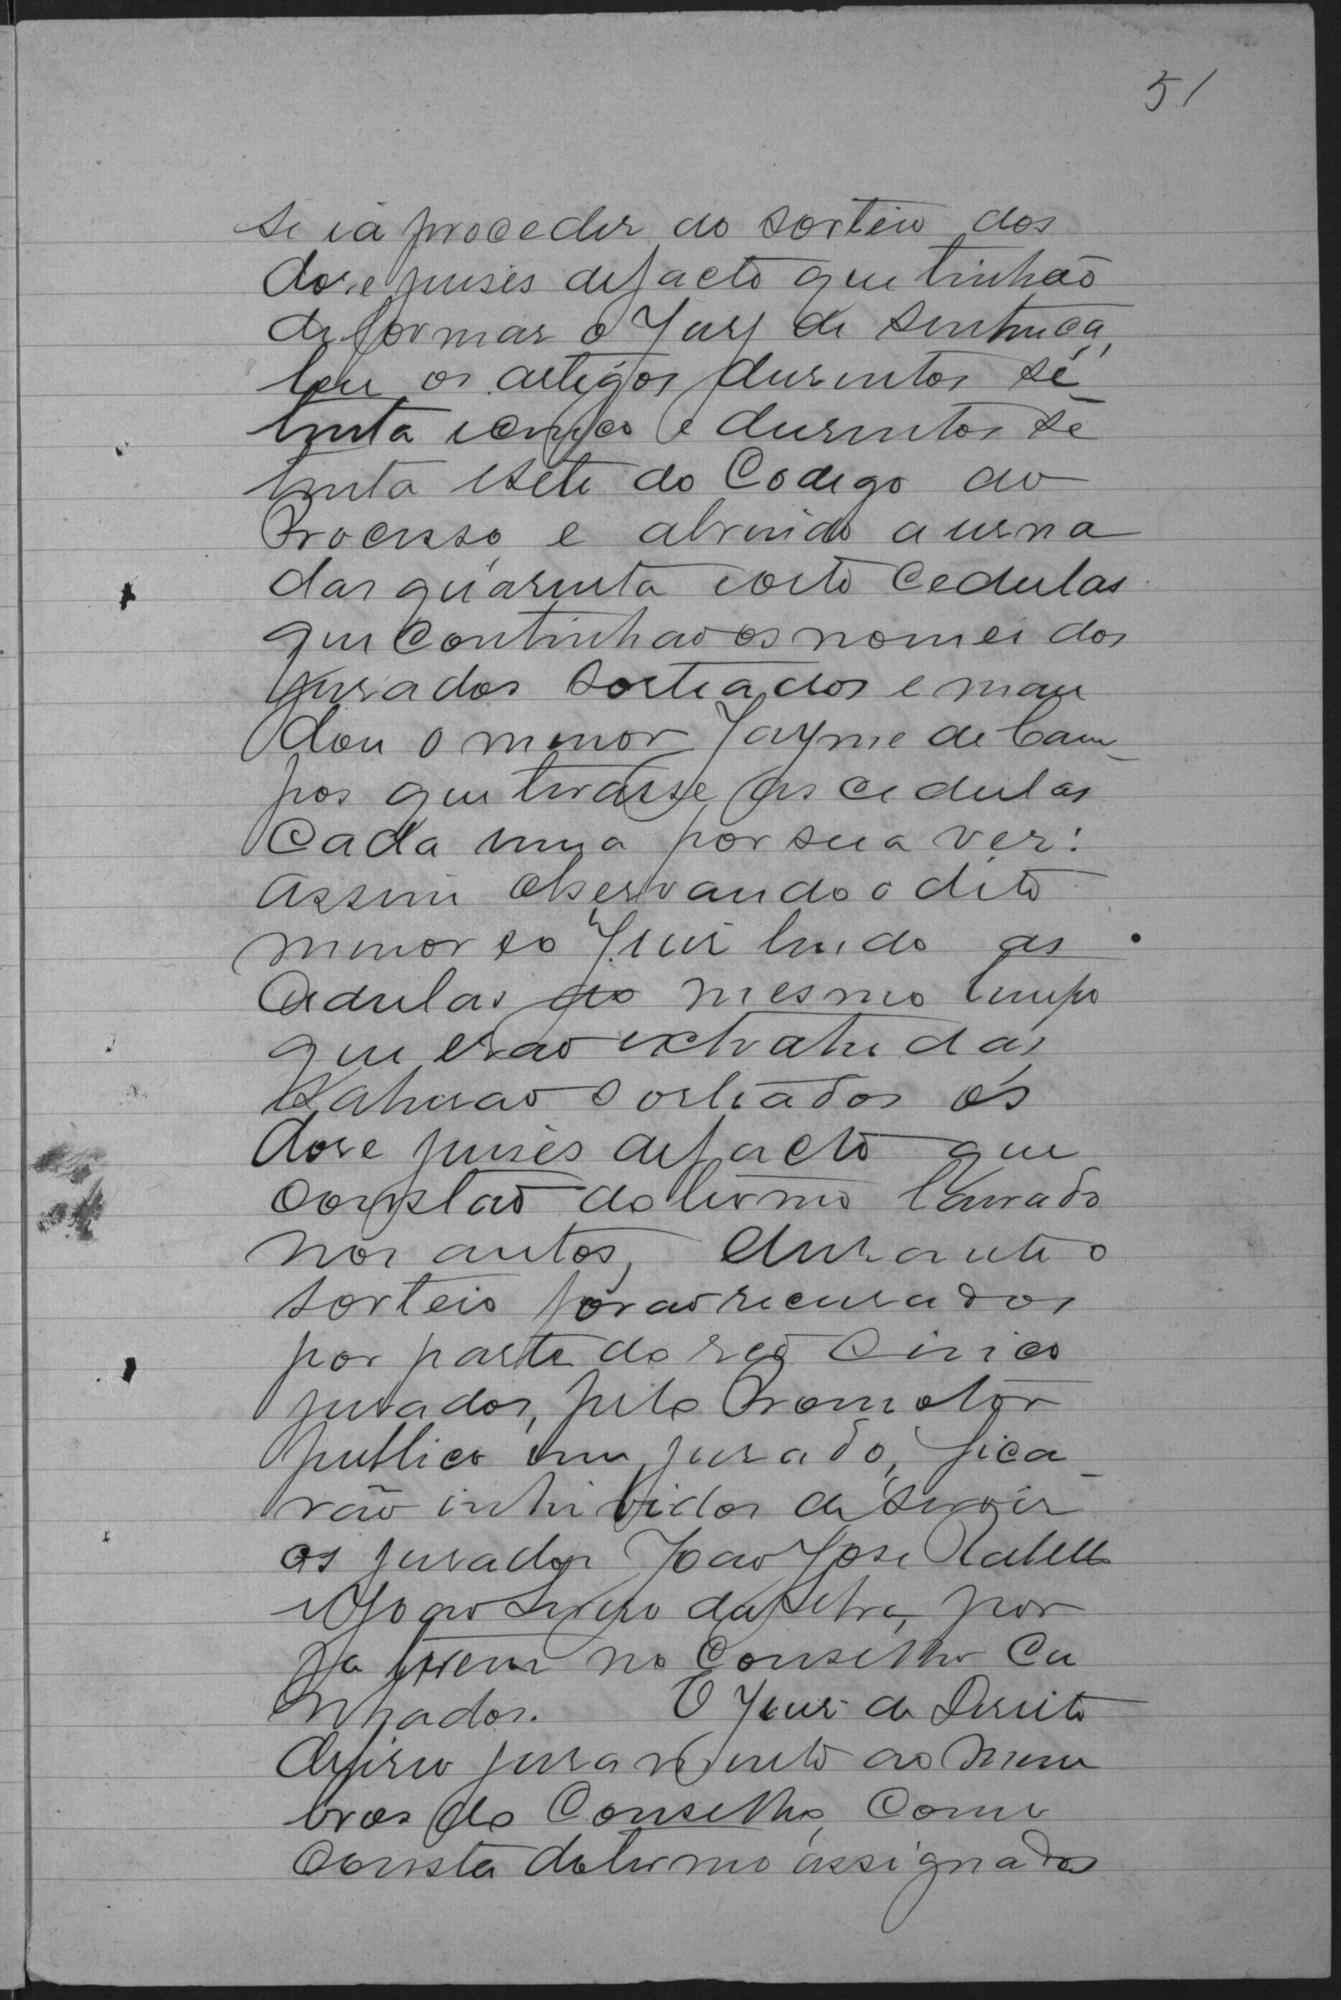 51
se ia proceder ao sorteio dos
doze juises de facto que tinhão
de formar o Jury de sentença,
leu os artigos dusentos se
tenta e cinco e dusentos se
tenta e sete do Codigo do
Processo e abrindo a urna
das quarenta e oito cedulas
que continhao os nomes dos
jurados sorteados e man
dou o menor Jayme de Cam_
pos que tirasse as cedulas
cada uma por sua vez:
Assim observando o dito
menor e o Juiz lendo as
cedulas ao mesmo tempo
que erao extrahidas
sahirao sorteados os
doze juises de facto que
constao do termo lavrado
nos autos, durante o
sorteio forao recusados
por parte do reo cinco
jurados, pelo Promotor
publico um jurado, fica_
rão inhibidos de servir
os jurados Joao José Rabello
e Joao da Silva, por
ja terem no Conselho Cu
nhados. O Juiz de Direito
deferio juramento ao mem
bros do Conselho, como
consta do termo assignados